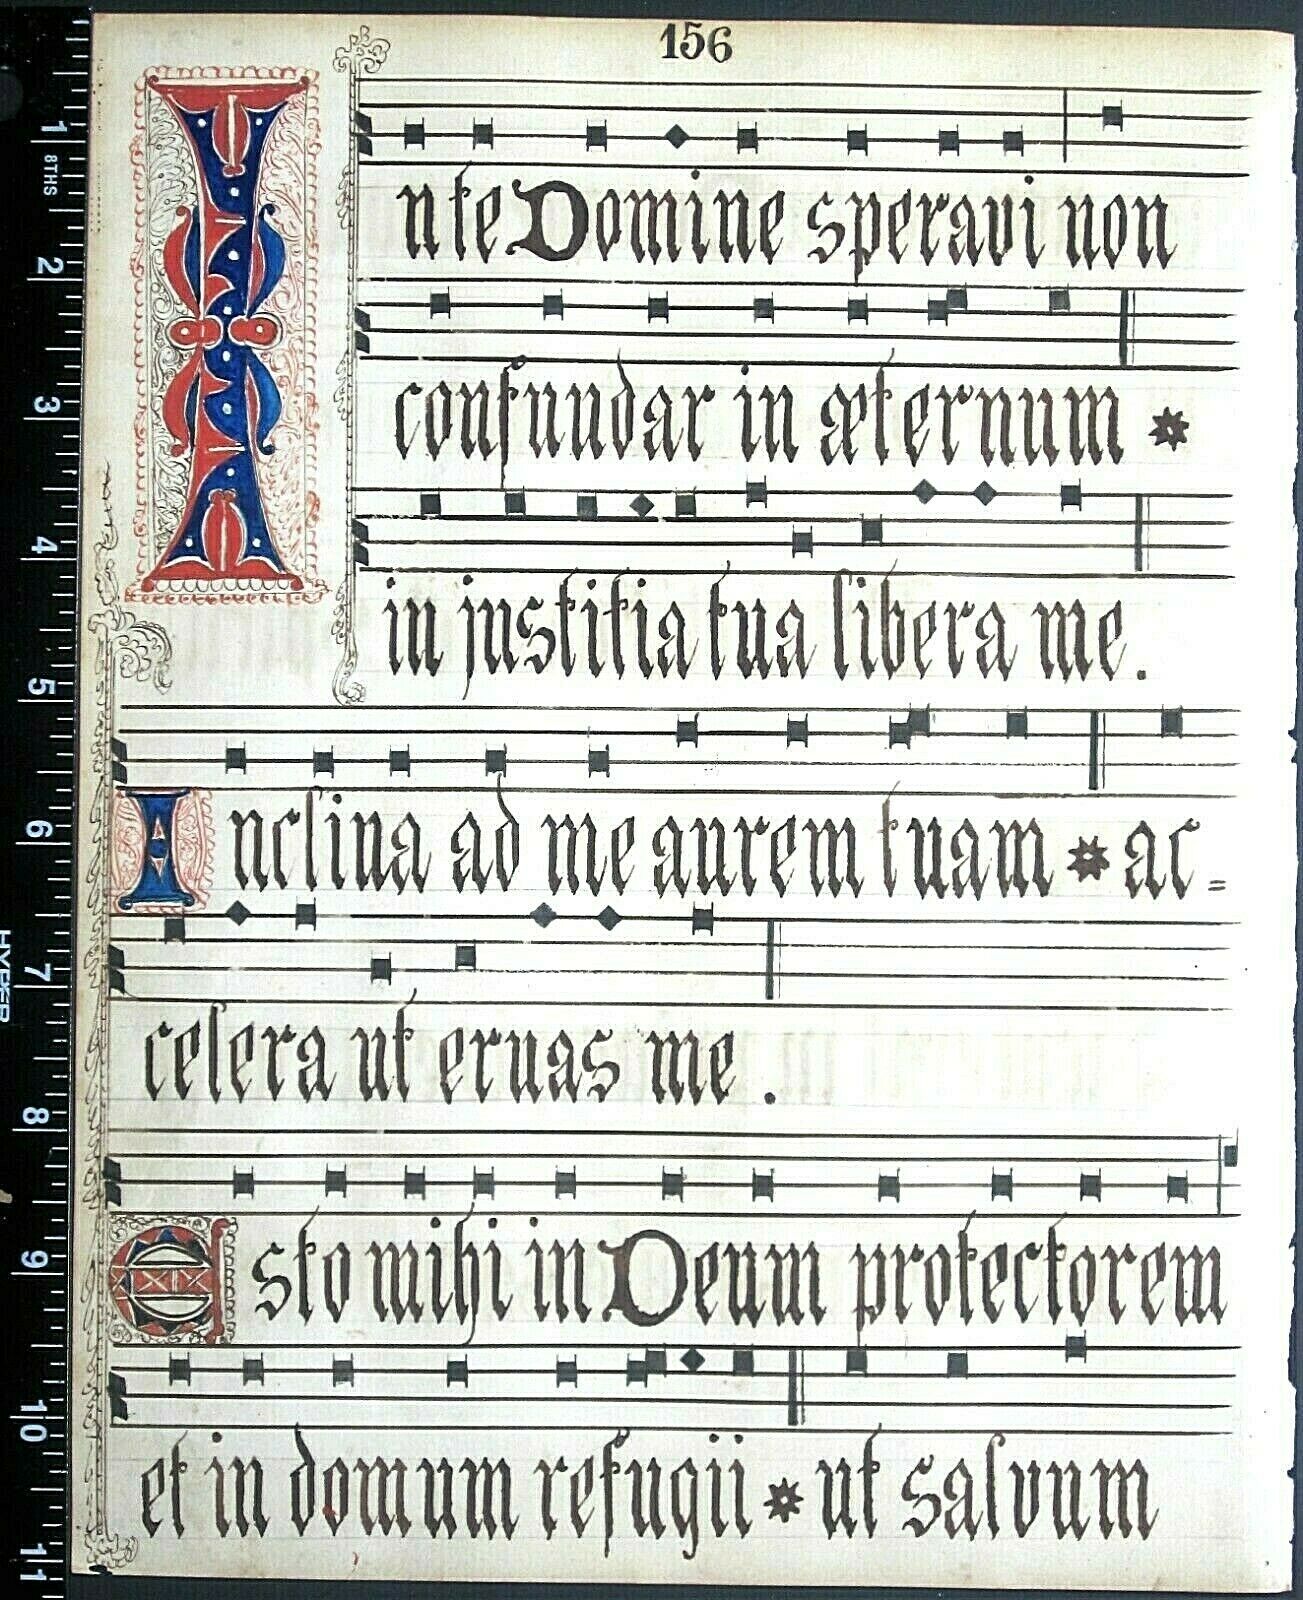 156
Inte Domine speravi non
confundar in æternum *
in justitia tua libera me.
Inclina ad me aurem tuam * ac=
celera ut eruas me.
Esto mihi in Deum protectorem
et in domum refugii * ut salvum
1
8THS
2
3
4
5
6
7
HYPER
8
9
10
11